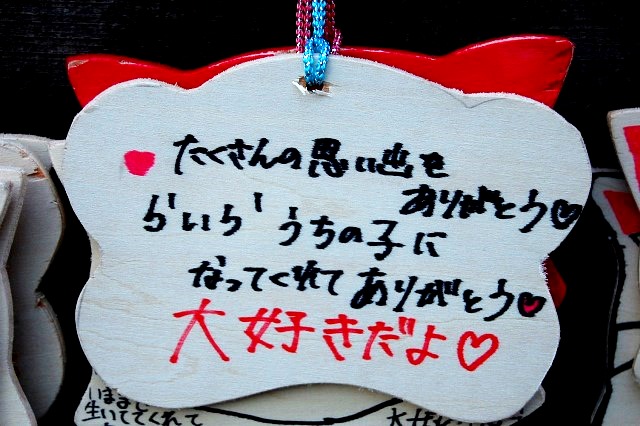 ♥たくさんの思い出を
ありがとう♡
らいら うちの子に
なってくれてありがとう♥
大好きだよ♡
いままで
生いてくれて